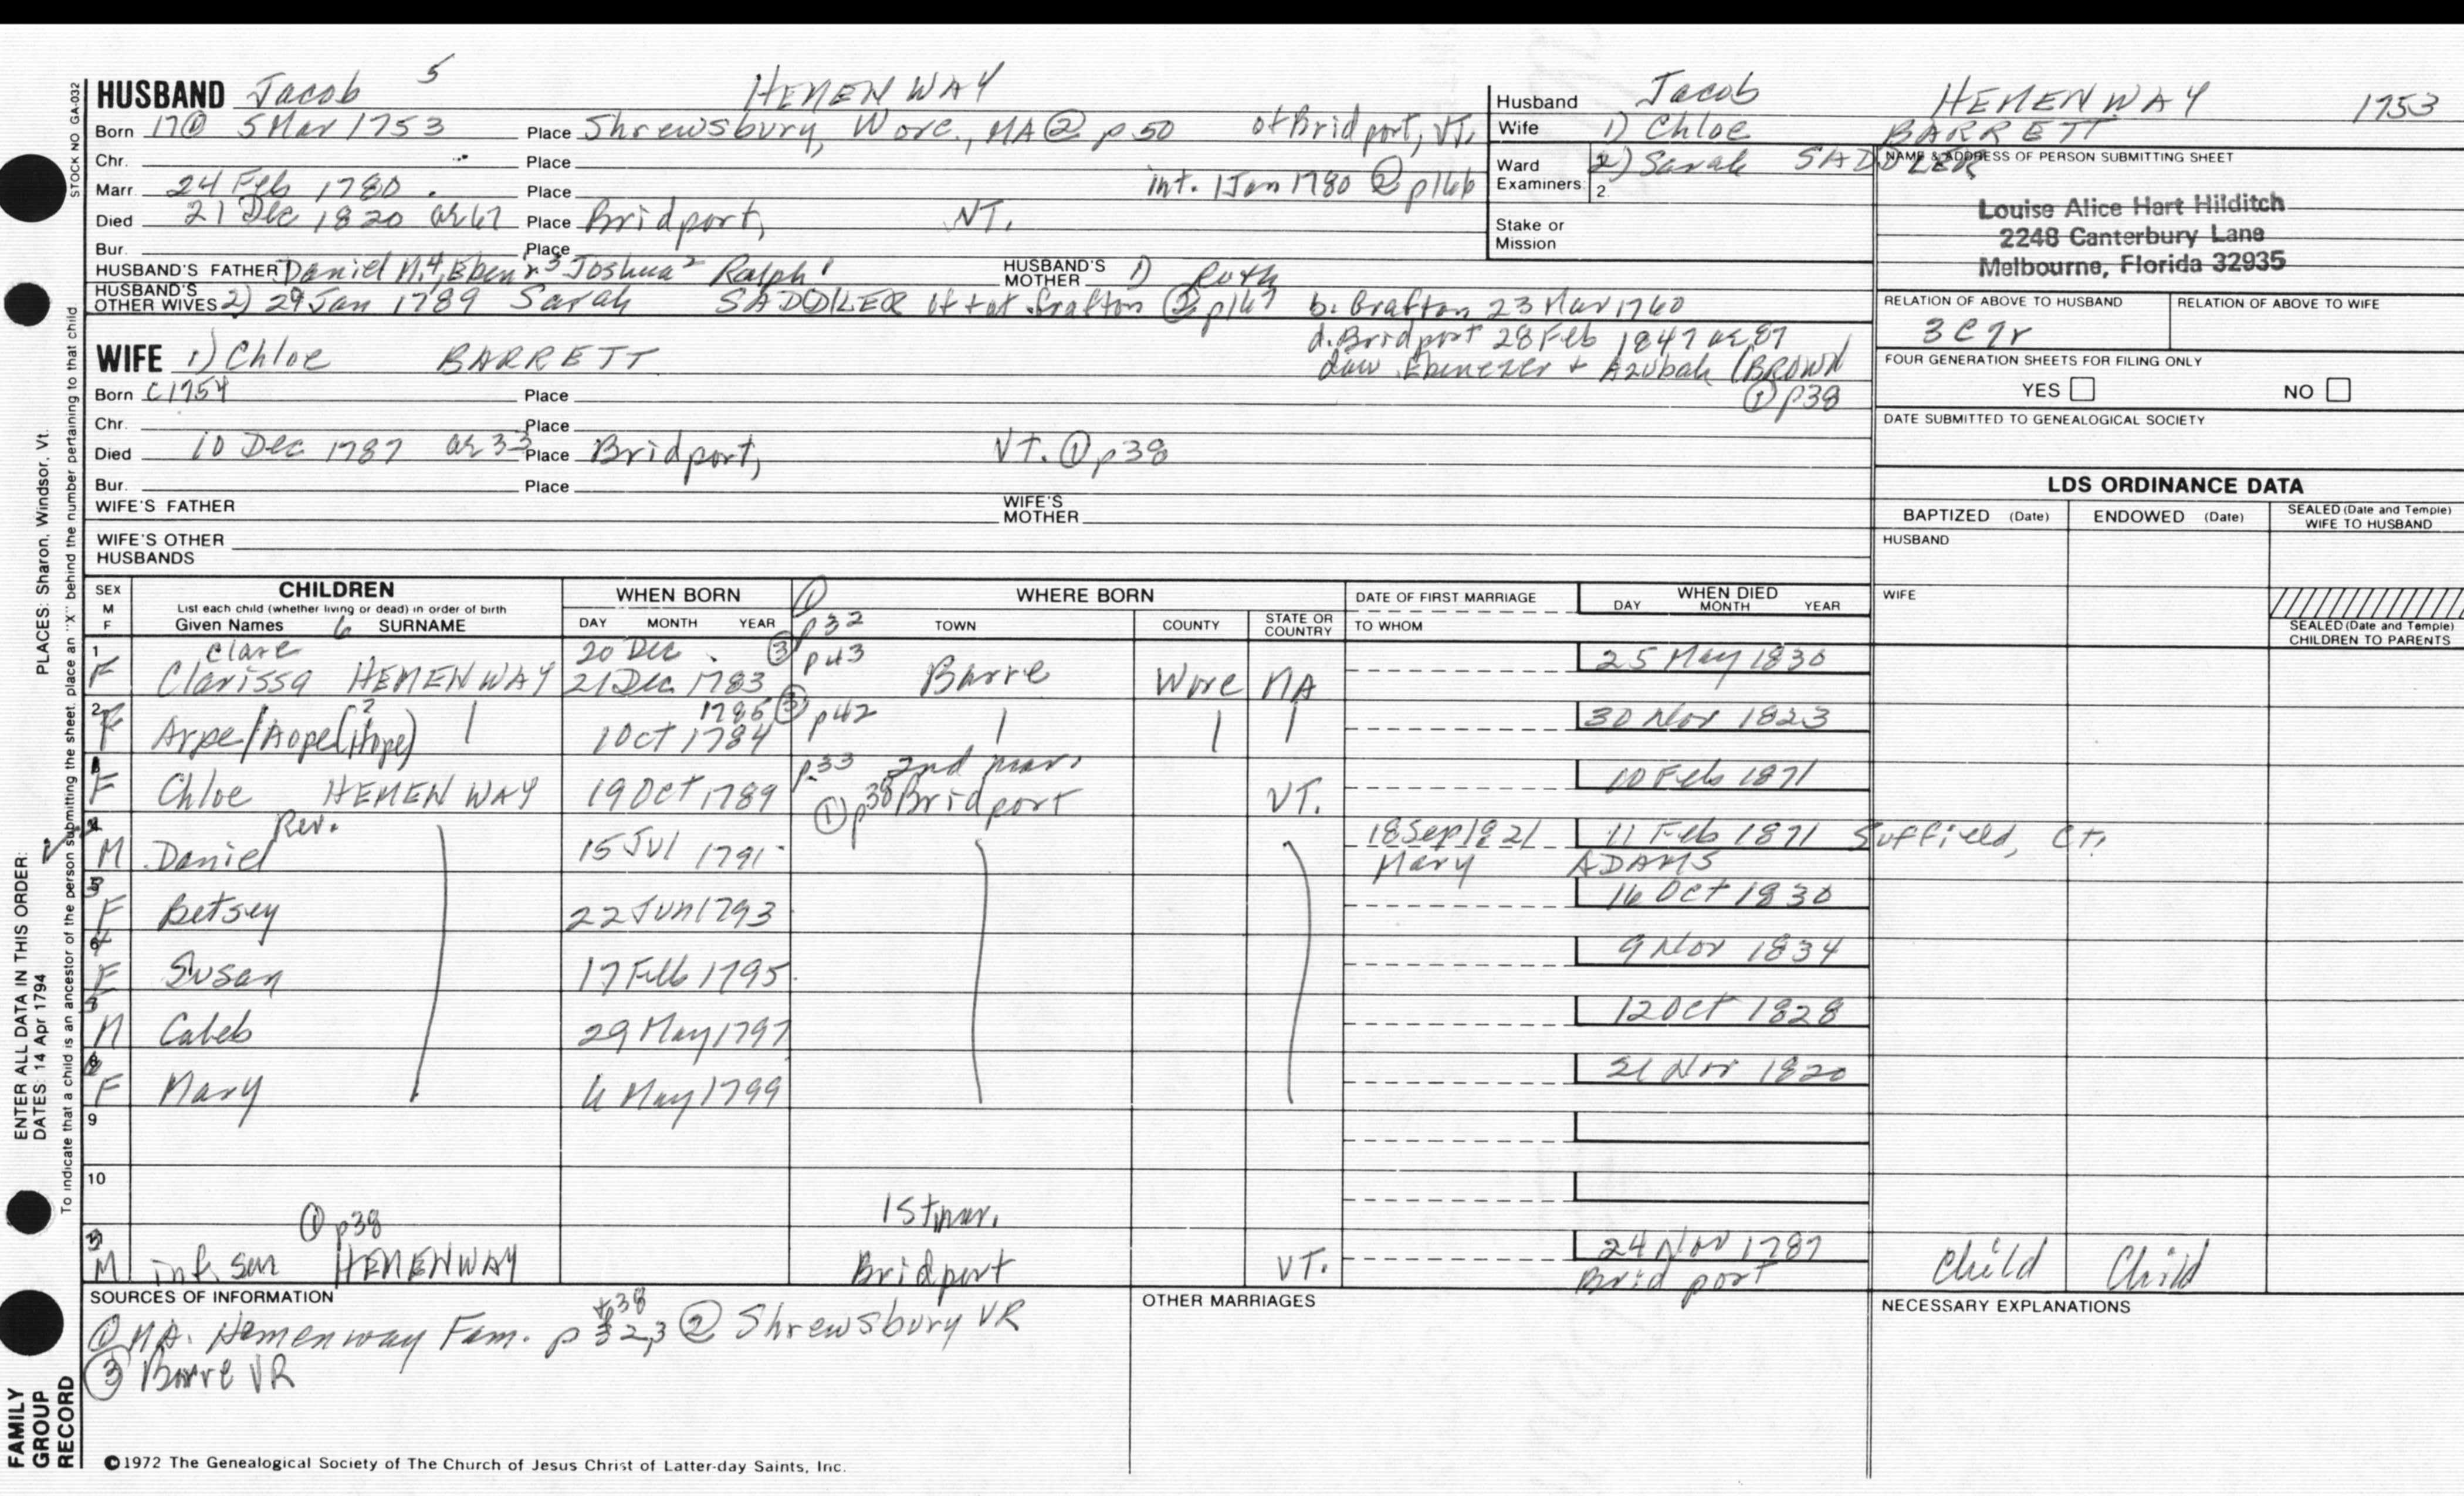 HUSBAND Jacob 5 HEMENWAY
Born 17① 5 Mar 1753 Place Shrewsbury, Worc., MA ② p 50 of Bridport, VT.
Chr. Place
Marr. 24 Feb 1780. Place int. 1 Jan 1780 ② p166
Died 21 Dec 1820 ae 67 Place Bridport, VT.
Bur. Place
HUSBAND'S FATHER Daniel M.4, Eben'r3 Joshua2 Ralph1 HUSBAND'S MOTHER 1) Ruth
HUSBAND'S OTHER WIVES 2) 29 Jan 1789 Sarah SADDLER of + at Grafton ② p167 b. Grafton 23 Mar 1760
d. Bridport 28 Feb 1847 ae 87
dau Ebenezer + Azubah (BROWN
① p38
WIFE 1) Chloe BARRETT
Born c1754 Place
Chr. Place
Died 10 Dec 1787 ae 33 Place Bridport, VT. ① p38
Bur. Place
WIFE'S FATHER WIFE'S MOTHER
WIFE'S OTHER HUSBANDS
Husband Jacob HEMENWAY 1753
Wife 1) Chloe BARRETT
Ward 2) Sarah SADDLER
Examiners: 2.
Stake or Mission
NAME & ADDRESS OF PERSON SUBMITTING SHEET
Louise Alice Hart Hilditch
2248 Canterbury Lane
Melbourne, Florida 32935
RELATION OF ABOVE TO HUSBAND RELATION OF ABOVE TO WIFE
3C7r
FOUR GENERATION SHEETS FOR FILING ONLY
YES NO
DATE SUBMITTED TO GENEALOGICAL SOCIETY
LDS ORDINANCE DATA
BAPTIZED (Date) ENDOWED (Date) SEALED (Date and Temple) WIFE TO HUSBAND
HUSBAND
WIFE
SEALED (Date and Temple) CHILDREN TO PARENTS
SEX M F CHILDREN WHEN BORN ① WHERE BORN DATE OF FIRST MARRIAGE WHEN DIED
List each child (whether living or dead) in order of birth
Given Names 6 SURNAME DAY MONTH YEAR p32 TOWN COUNTY STATE OR COUNTRY TO WHOM DAY MONTH YEAR
1 Clare 20 Dec. ③ p43 25 May 1830
F Clarissa HEMENWAY 21 Dec 1783 Barre Worc MA
2 ? 1785 ③ p42 30 Nov 1823
F Arpe/Aope(Hope) 1 Oct 1784
p.33 2nd mar. 10 Feb 1871
F Chloe HEMENWAY 19 Oct 1789 ① p38 Bridport VT.
Rev. 18 Sep 1821 11 Feb 1871 Suffield, Ct.
M Daniel 15 Jul 1791 Mary ADAMS
5 16 Oct 1830
F Betsey 22 Jun 1793
6 9 Nov 1834
F Susan 17 Feb 1795
12 Oct 1828
M Caleb 29 May 1797
8 21 Nov 1820
F Mary 4 May 1799
9
10
① p38 1st mar.
24 Nov 1787
M inf. son HEMENWAY Bridport VT. Bridport Child Child
SOURCES OF INFORMATION OTHER MARRIAGES NECESSARY EXPLANATIONS
+38
① MA. Hemenway Fam. p 32,3 ② Shrewsbury VR
③ Barre VR
©1972 The Genealogical Society of The Church of Jesus Christ of Latter-day Saints, Inc.
STOCK NO GA-032
To indicate that a child is an ancestor of the person submitting the sheet, place an "X" behind the number pertaining to that child
PLACES: Sharon, Windsor, Vt.
ENTER ALL DATA IN THIS ORDER:
DATES: 14 Apr 1794
FAMILY
GROUP
RECORD